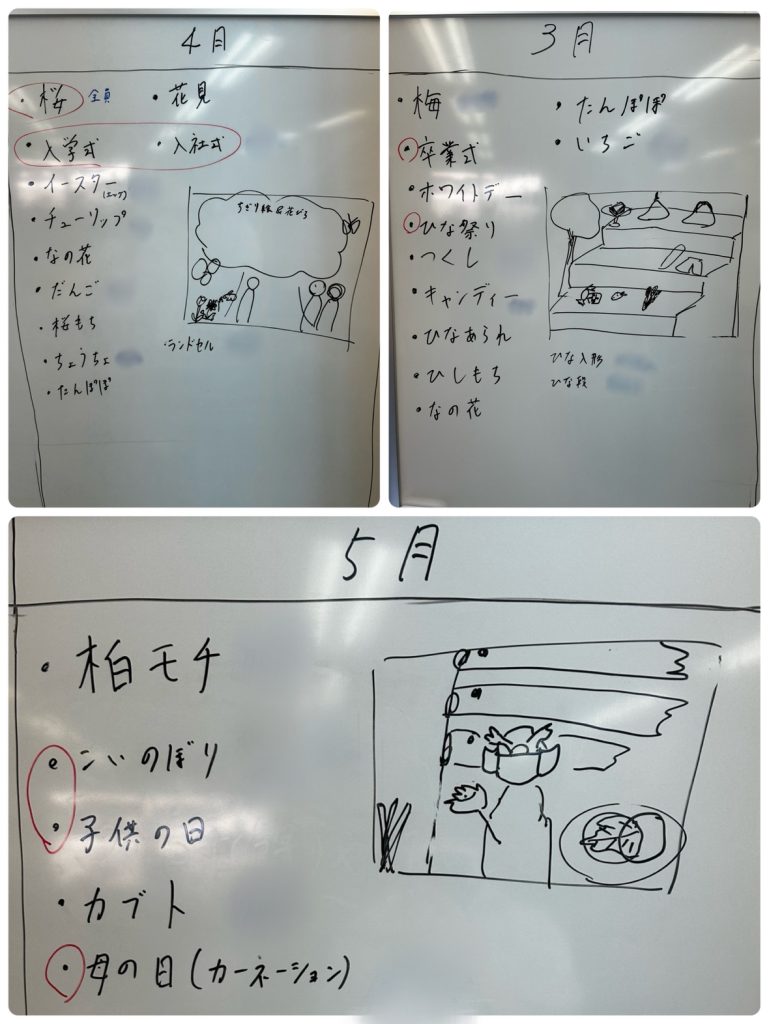 4月
・桜 全員
・花見
・入学式
・入社式
・イースター(エッグ)
・チューリップ
・なの花
・だんご
・桜もち
・ちょうちょ
・たんぽぽ
ちぎり絵 花びら
ランドセル
3月
・梅
・たんぽぽ
・卒業式
・いちご
・ホワイトデー
・ひな祭り
・つくし
・キャンディー
・ひなあられ
・ひしもち
・なの花
ひな人形
ひな段
5月
・柏モチ
・こいのぼり
・子供の日
・カブト
・母の日(カーネーション)